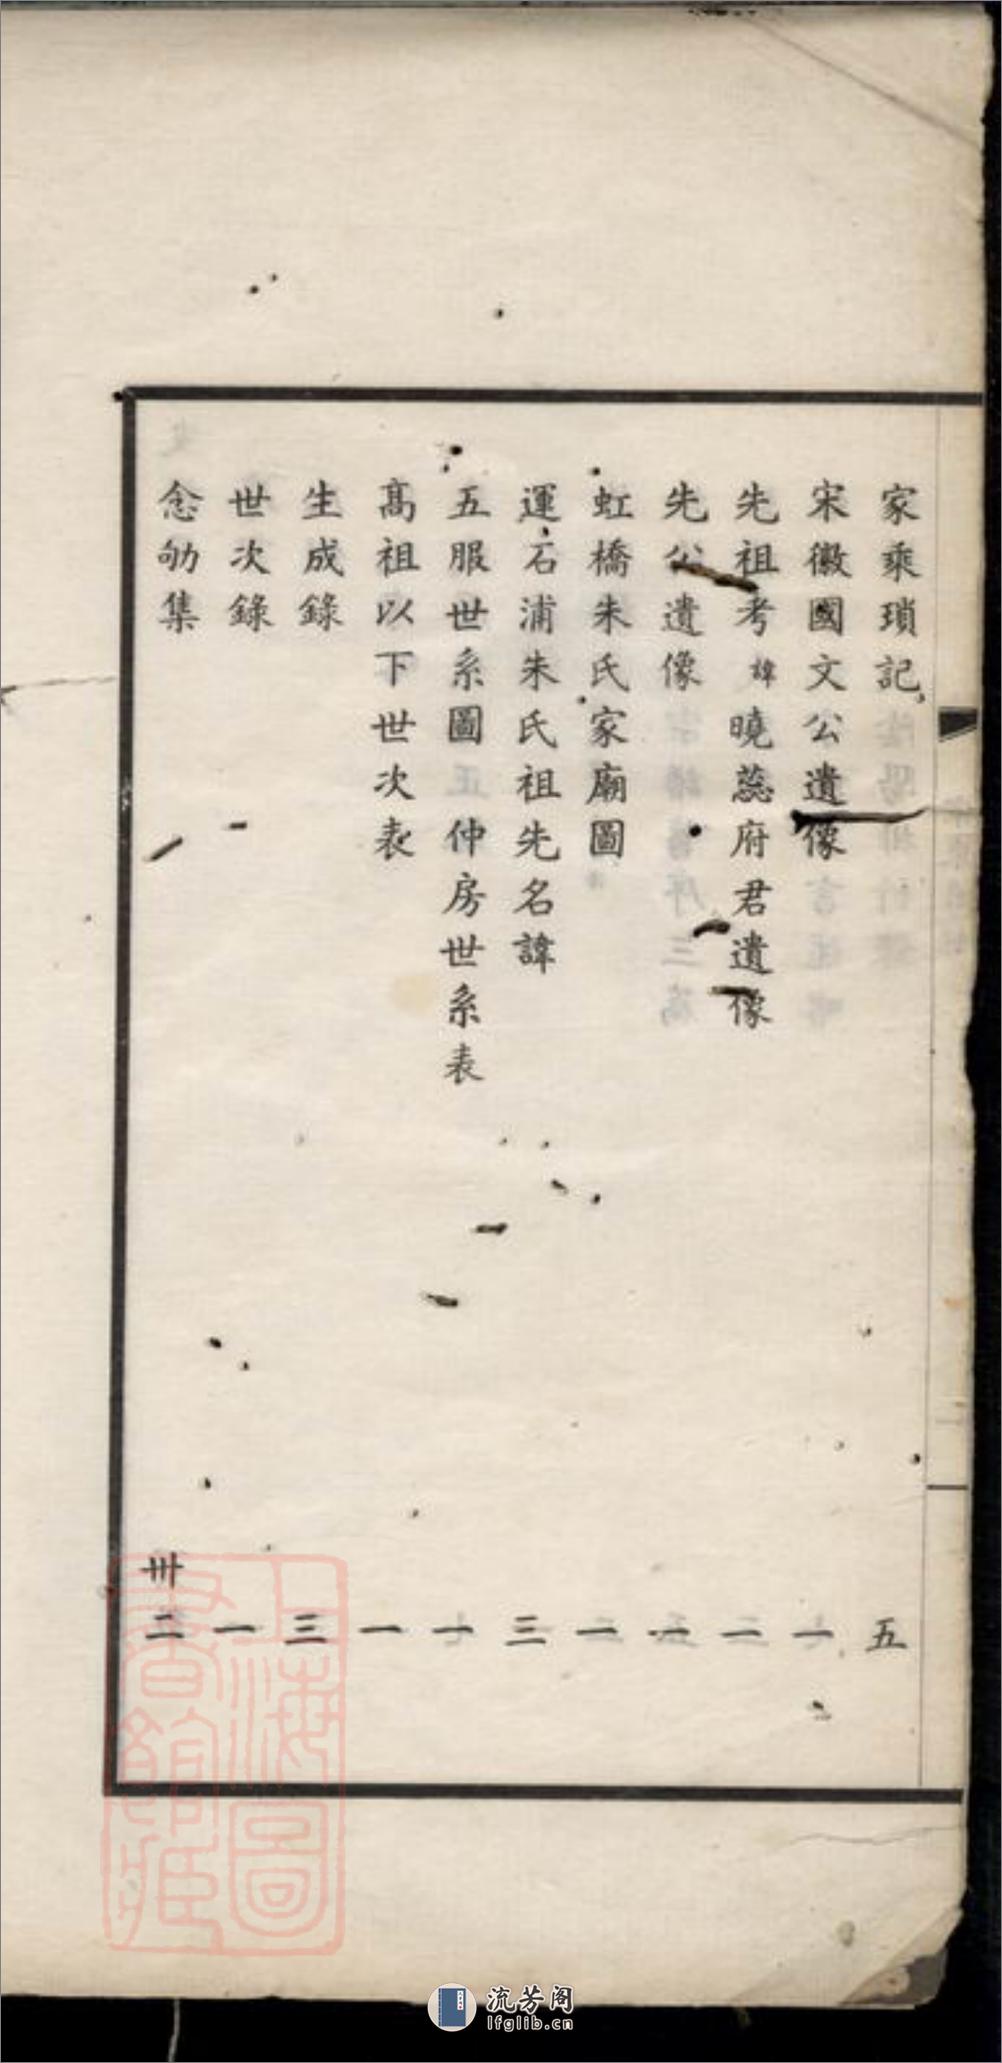 家乘瑣記 五
宋徽國文公遺像 一
先祖考諱曉蕊府君遺像 一
先公遺像 一
虹橋朱氏家廟圖 一
運石浦朱氏祖先名諱 三
五服世系圖 仲房世系表 一
高祖以下世次表 一
生成錄 三
世次錄 一
念劬集 卅二
上海圖書館藏
流芳阁
lfglib.cn